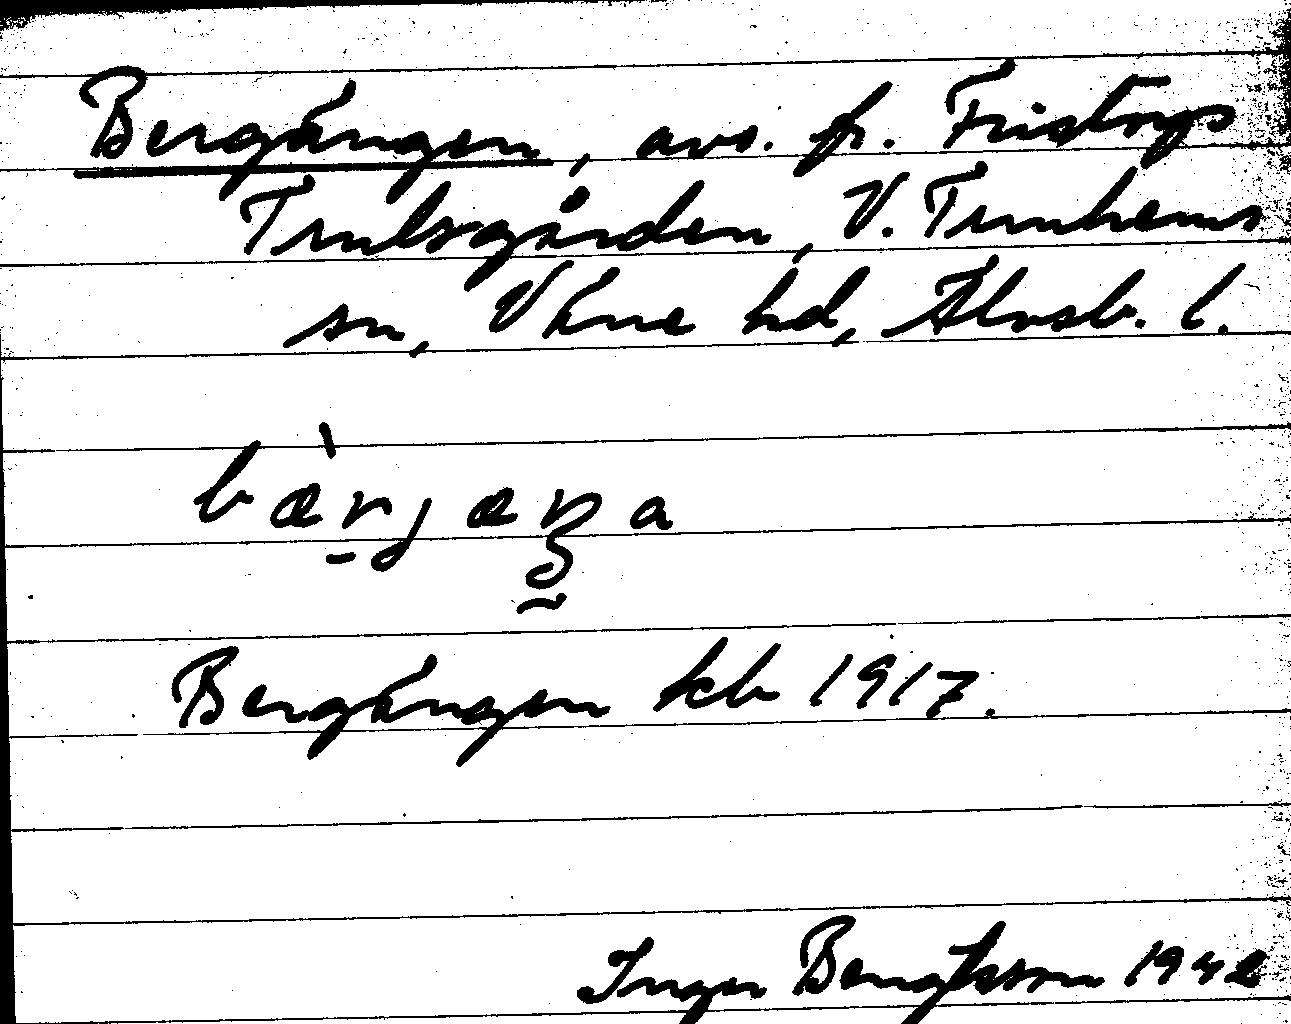 Bergängen, avs. fr. Fristorps
Trulsgården, V. Tunhems
sn, Väne hd, Älvsb. l.
bæ̀rjæŋa
Bergängen kb 1917.
Inger Bengtsson 1942